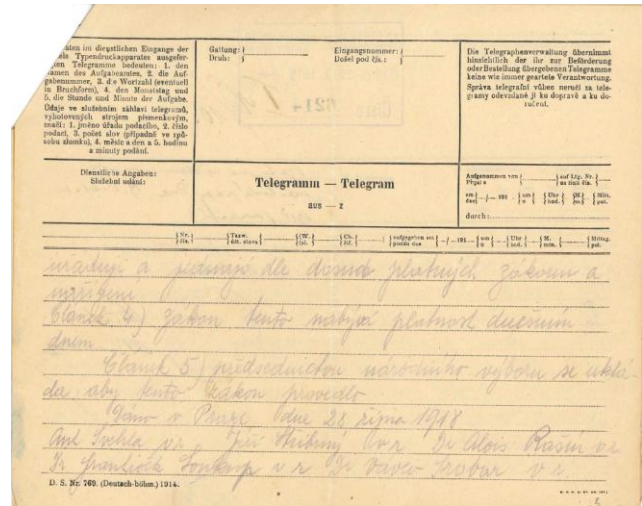 aten im dienstlichen Eingange der
els Typendruckapparates ausgefer-
ten Telegramme bedeuten: 1. den
amen des Aufgabeamtes, 2. die Auf-
gabenummer, 3. die Wortzahl (eventuell
in Bruchform), 4. den Monatstag und
5. die Stunde und Minute der Aufgabe.
Údaje ve služebním záhlaví telegramů,
vyhotovených strojem písmenkovým,
značí: 1. jméno úřadu podacího, 2. číslo
podací, 3. počet slov (případně ve způ-
sobu zlomku), 4. měsíc a den a 5. hodinu
a minuty podání.
Gattung:
Druh:
Eingangsnummer:
Došel pod čís.:
Die Telegraphenverwaltung übernimmt
hinsichtlich der ihr zur Beförderung
oder Bestellung übergebenen Telegramme
keine wie immer geartete Verantwortung.
Správa telegrafní vůbec neručí za tele-
gramy odevzdané jí ku dopravě a ku do-
ručení.
Dienstliche Angaben:
Služební udání:
Telegramm — Telegram
aus — z
Aufgenommen von
Přijat z
auf Ltg. Nr.
na lin. čís.
durch:
úřadují a jednají dle dosud platných zákonů a
nařízení
Článek 4) Zákon tento nabývá platnost dnešním
dnem
Článek 5) předsednictvu národního výboru se uklá-
dá, aby tento zákon provedlo
Dáno v Praze dne 28 října 1918
Ant Švehla v.r. Jiří Stříbrný v.r Dr Alois Rašín v.r
Dr František Soukup v r Dr Vavro Šrobár v r
D. S. Nr. 769. (Deutsch-böhm.) 1914.